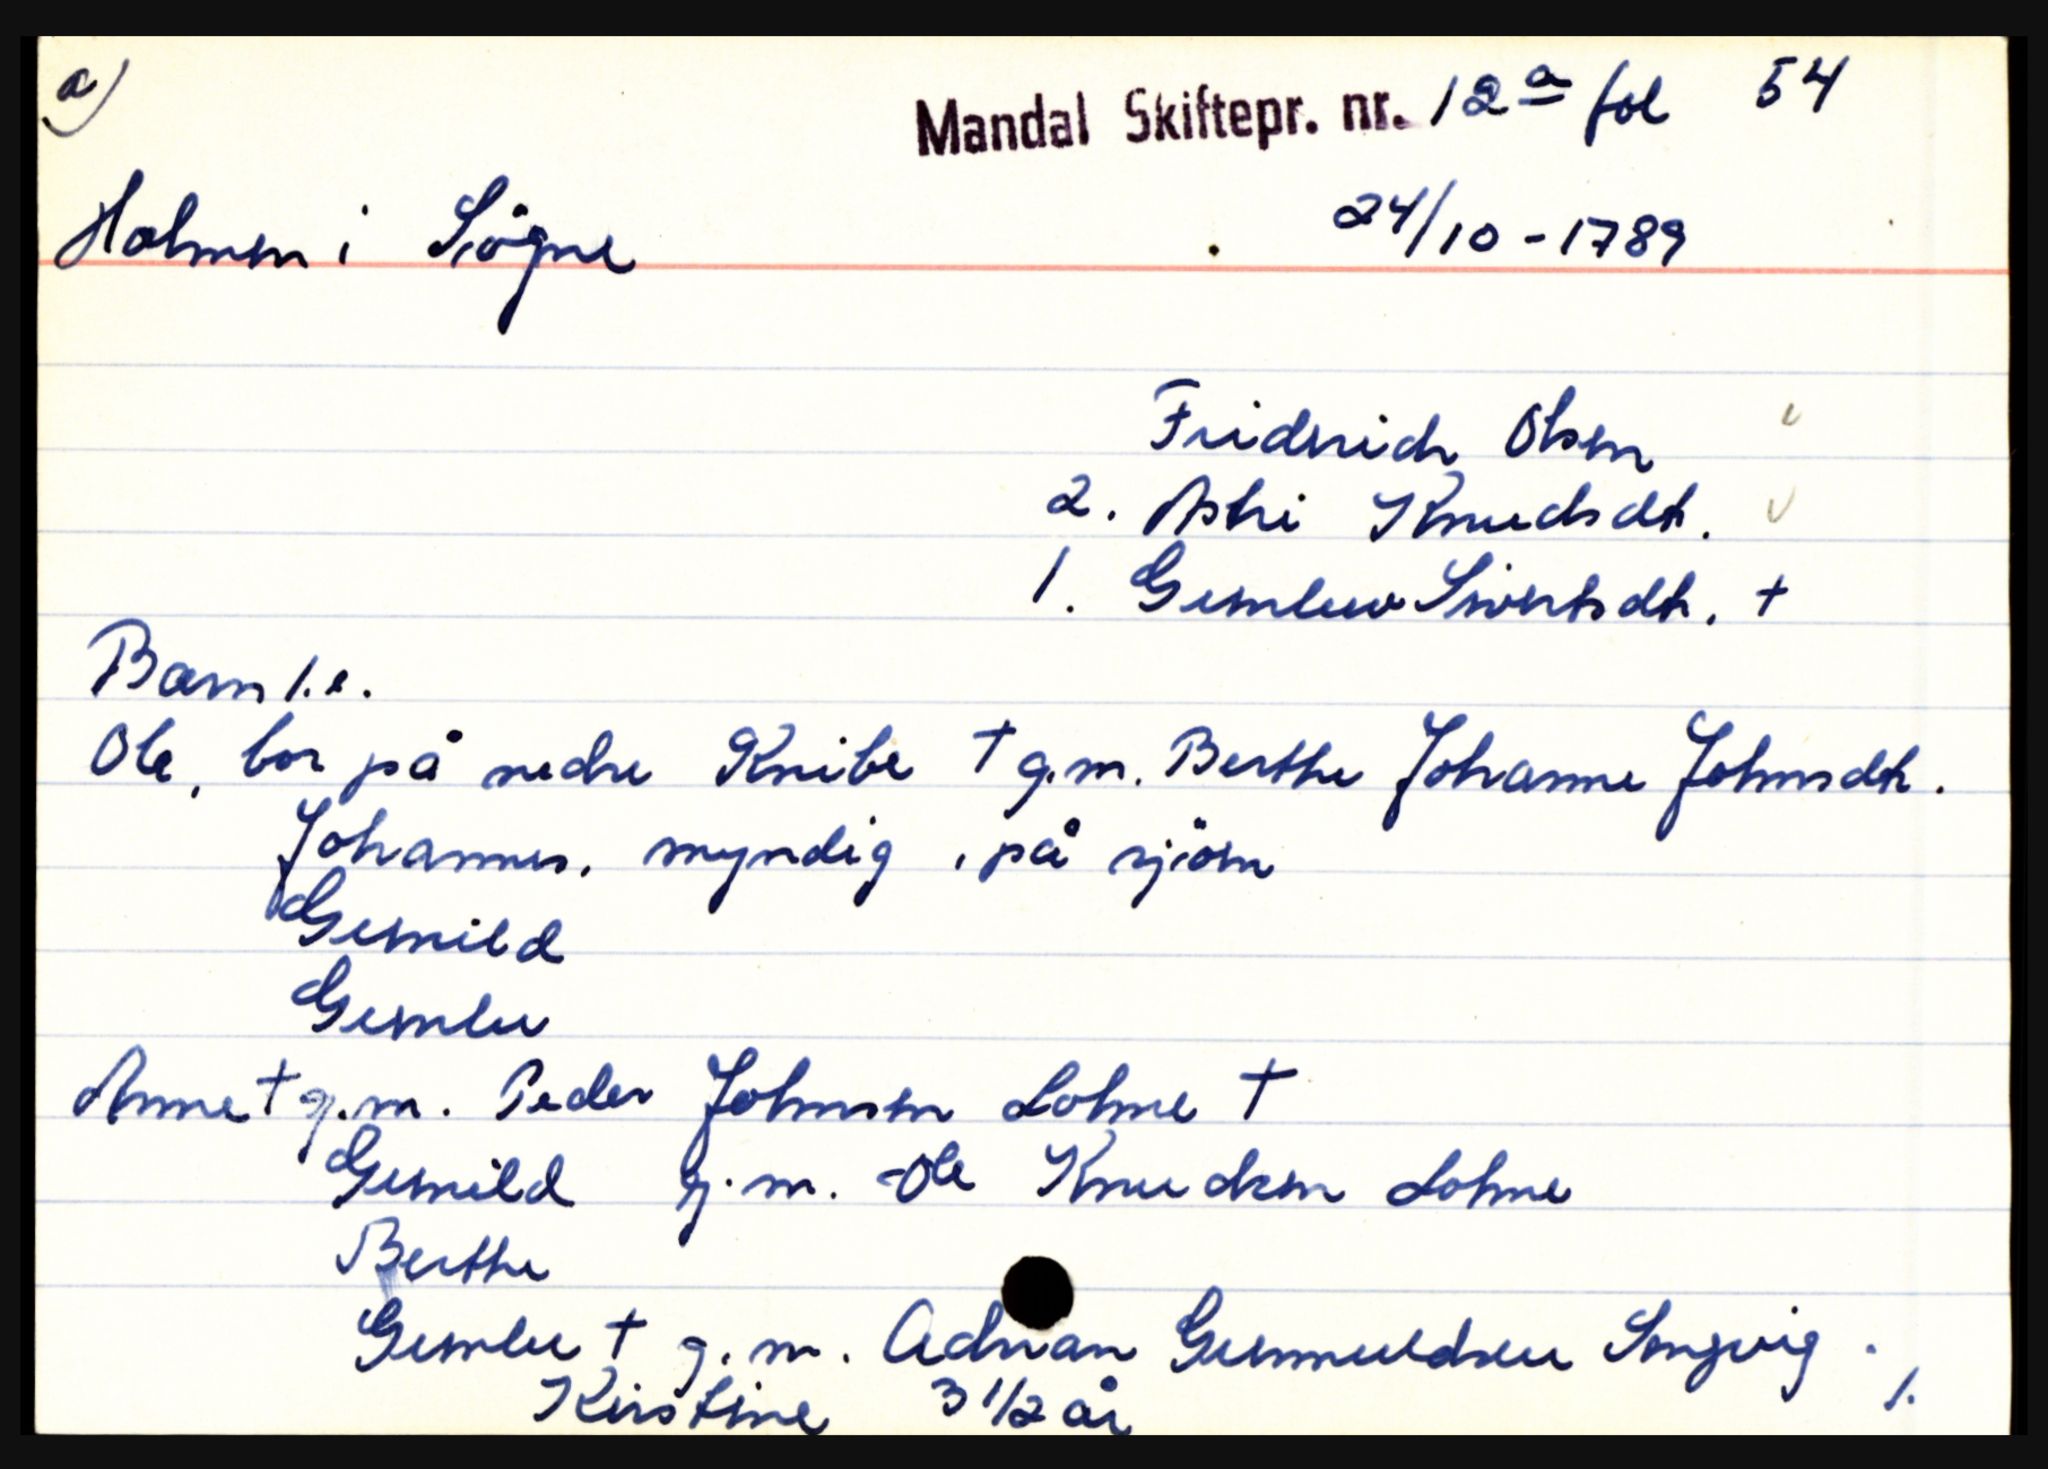 a)
Mandal Skiftepr. nr. 12a fol 54
Holmen i Sögne 24/10-1789
Fridrich Olsen
2. Astri Knudsdtr.
1. Gunleu Sivertsdtr. †
Barn 1.e.
Ole, bor på nedre Knibe † g.m. Berthe Johanne Johnsdtr.
Johannes, myndig, på sjöen
Gunild
Gunleu
Anne † g.m. Peder Johnsen Lohne †
Gunild g.m. Ole Knudsen Lohne
Berthe
Gunleu † g.m. Adrian Gunnuldsen Songvig.
Kirstine 3 1/2 år
1.